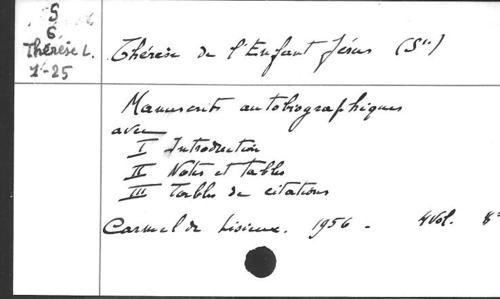 5
6
Thérèse L.
1-25
Thérèse de l'Enfant Jésus (Ste)
Manuscrits autobiographiques
avec
I Introduction
II Notes et tables
III Tables de citations
Carmel de Lisieux. 1956 - 4 vol. 8°